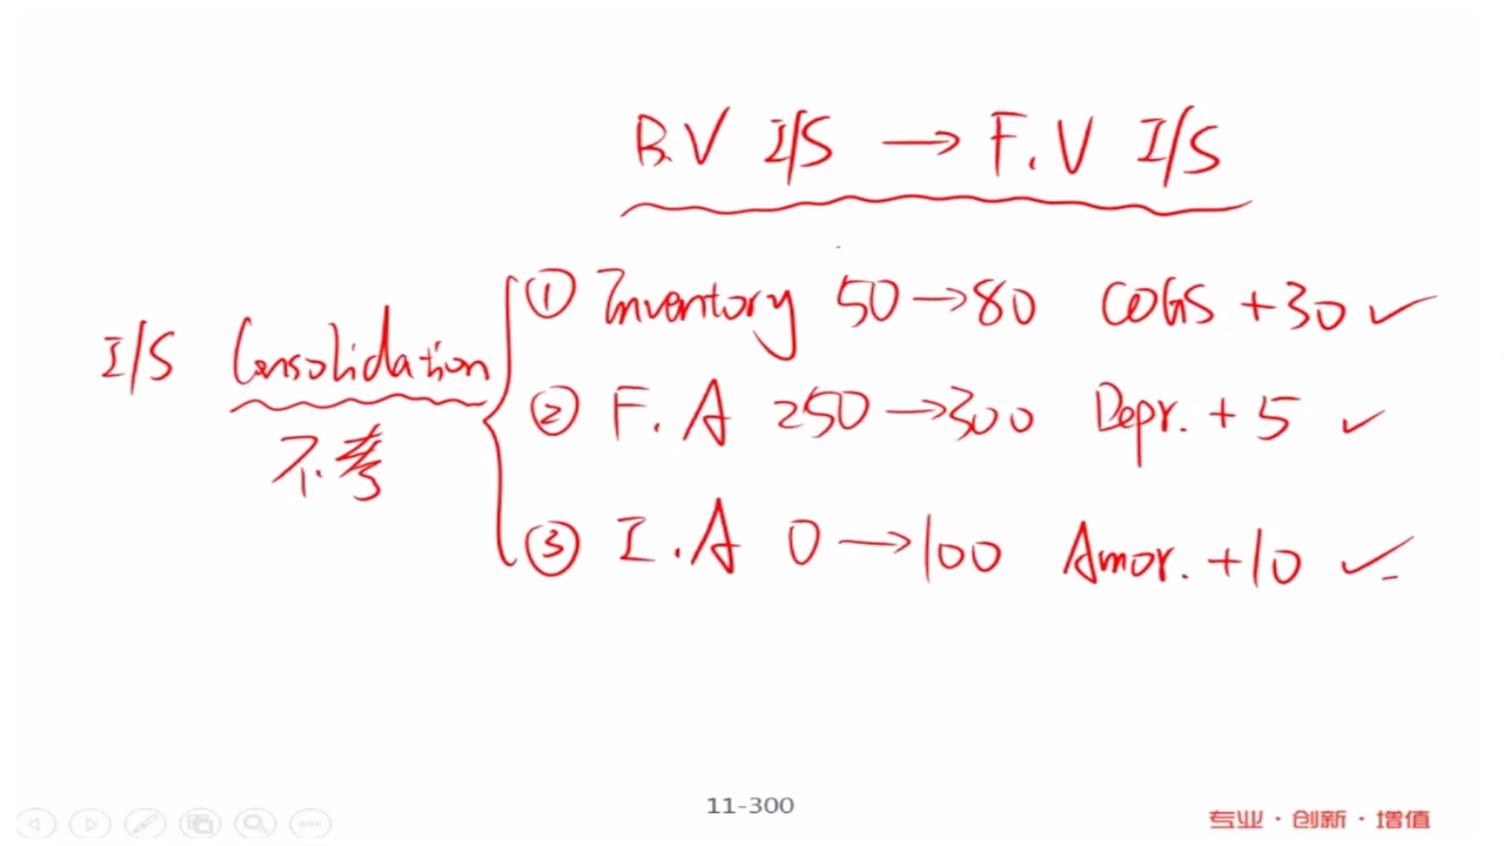 B.V I/S → F.V I/S
① Inventory 50→80 COGS +30 ✓
I/S Consolidation
② F.A 250→300 Depr. +5 ✓
不考
③ I.A 0→100 Amor. +10 ✓
11-300
专业·创新·增值